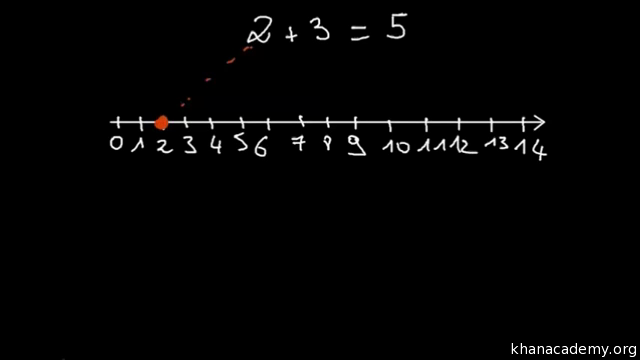 2 + 3 = 5
0 1 2 3 4 5 6 7 8 9 10 11 12 13 14
khanacademy.org